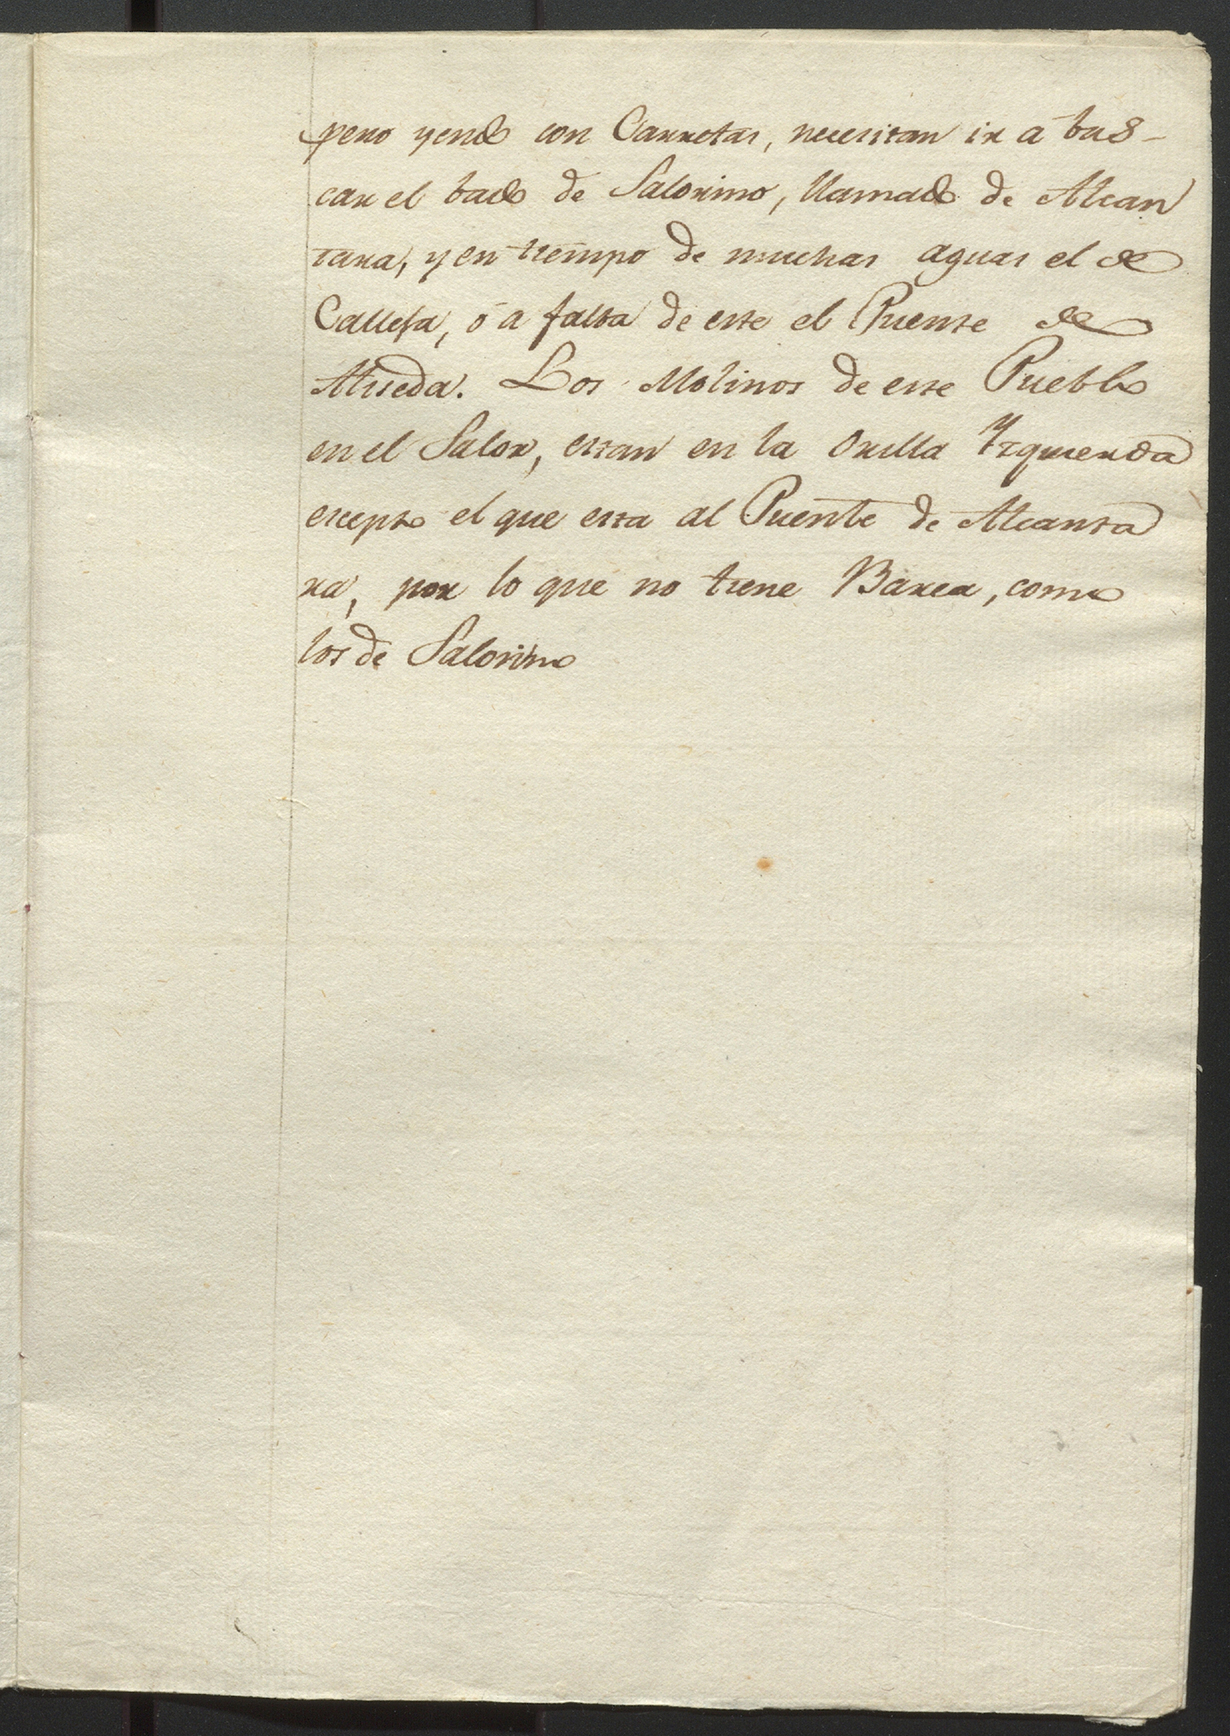 pero yendo con Carretas, necesitan ir a bus-
car el bado de Salorino, llamado de Alcan
tara, y en tiempo de muchas aguas el de
Calleja, ó a falta de este el Puente de
Aliseda. Los Molinos de este Pueblo
en el Salor, estan en la Orilla Yzquierda
escepto el que esta al Puente de Alcanta
ra, por lo que no tiene Barca, como
los de Salorino